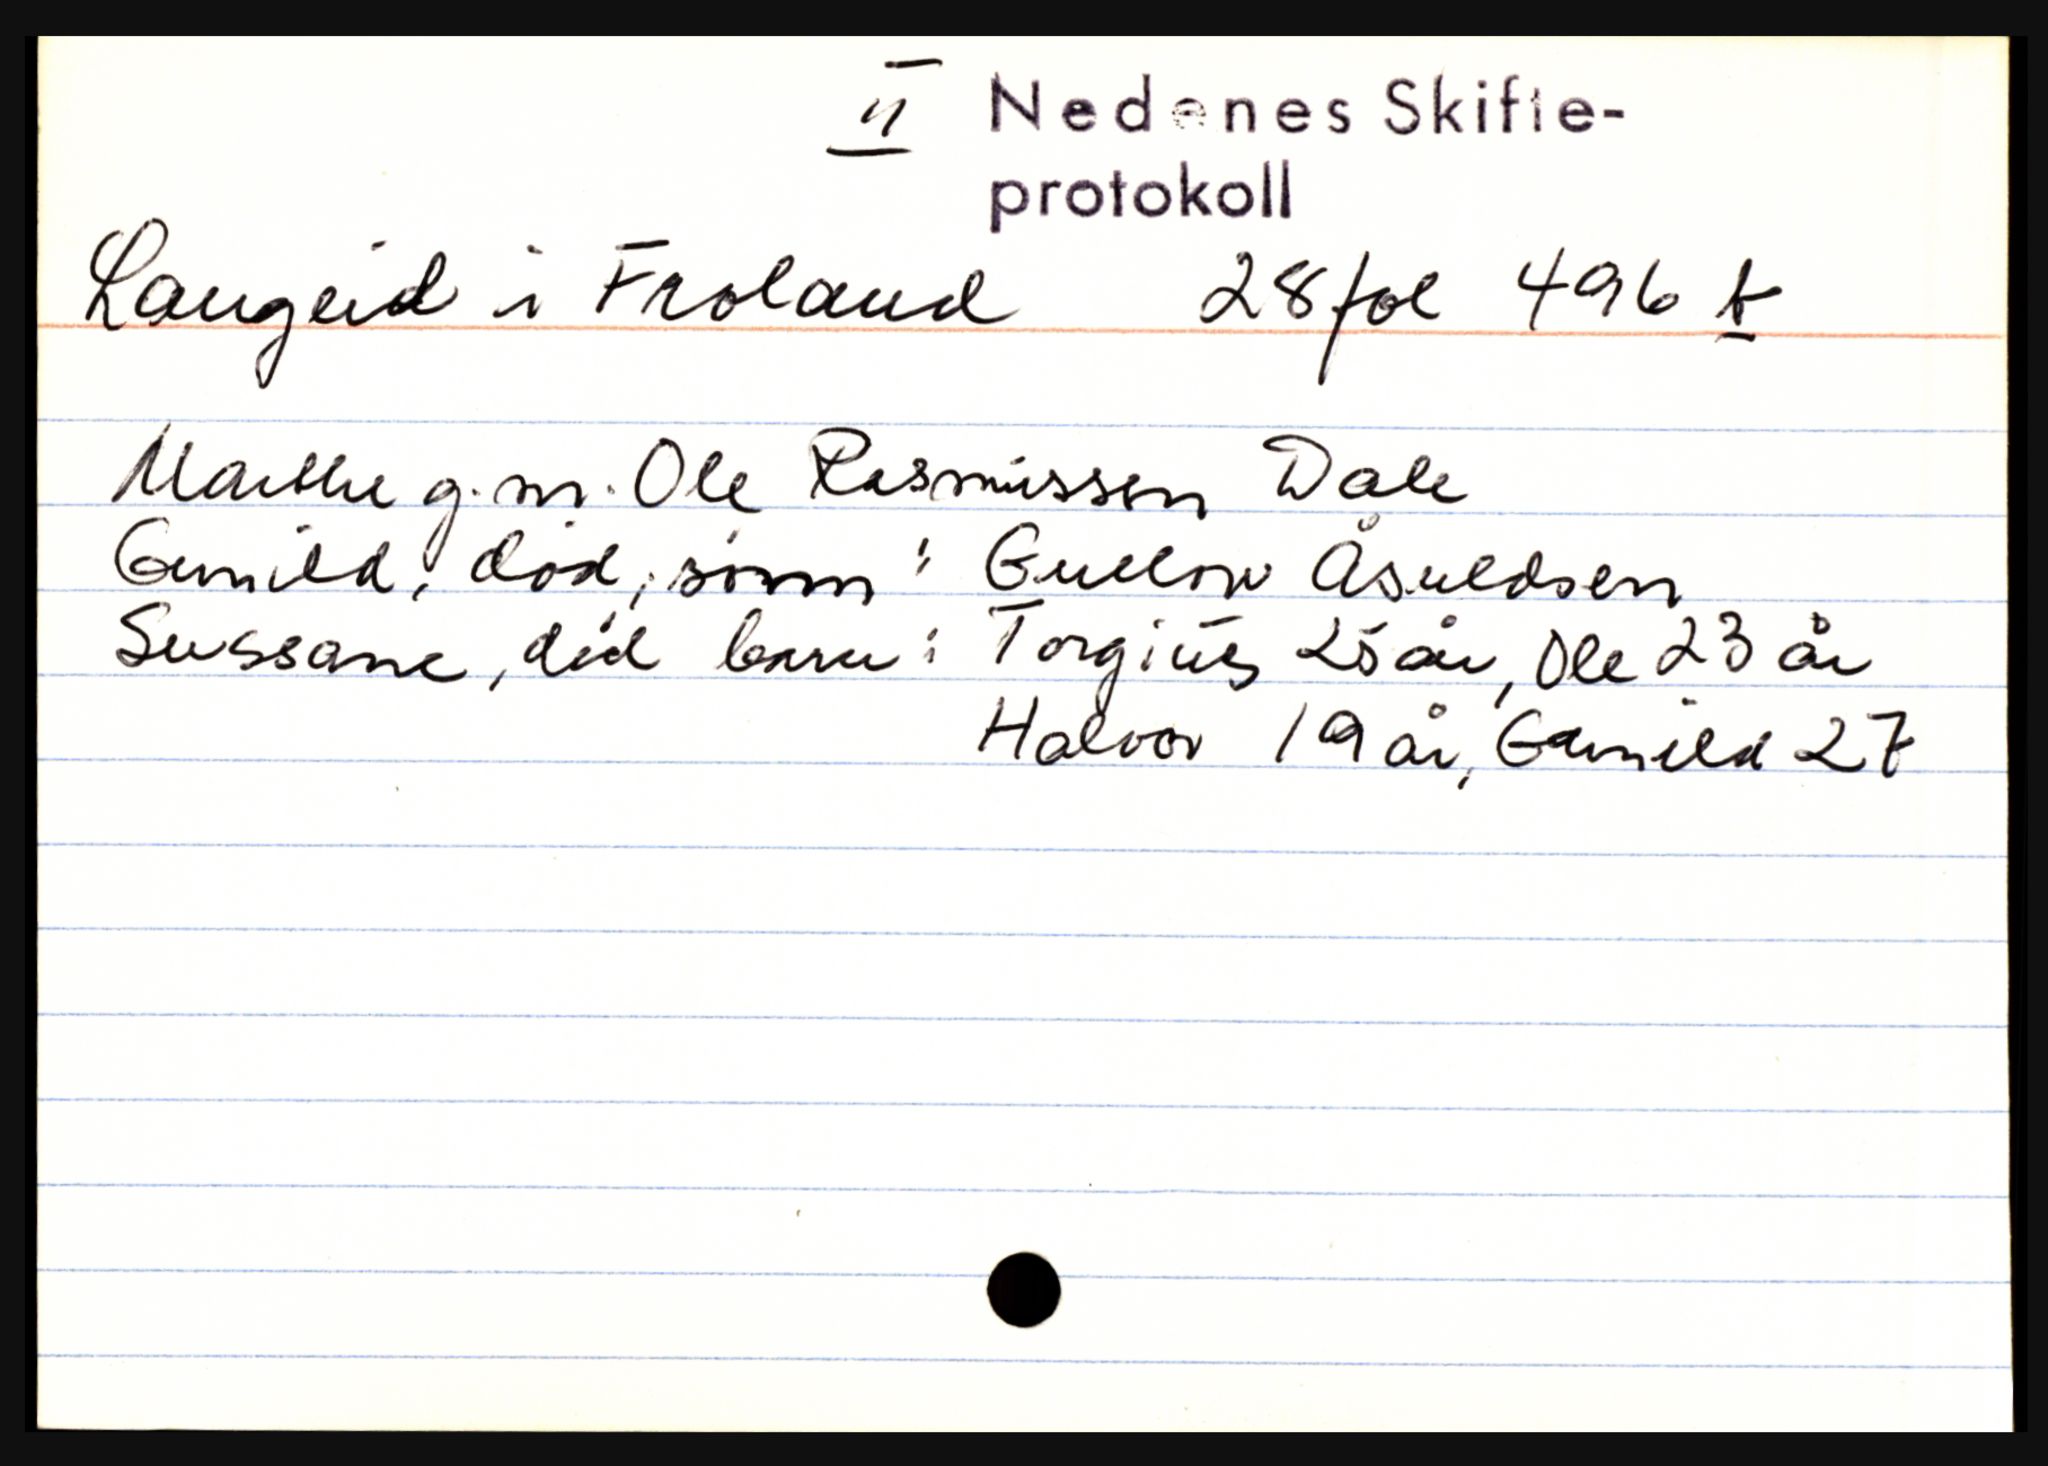 II Nedenes Skifte-
protokoll
Langeid i Froland 28 fol 496 b
Marthe g.m. Ole Rasmussen Dale
Gunild, död, sönn: Gullov Åsuldsen
Sussane, död barn: Torgius 25 år, Ole 23 år
Halvor 19 år, Gunild 27